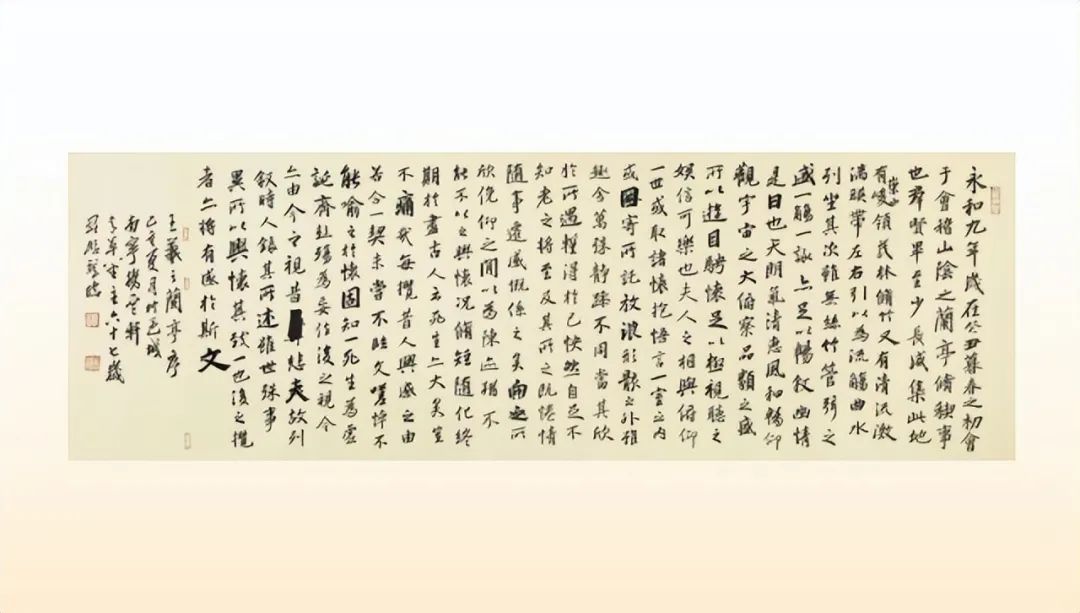 永和九年歲在癸丑暮春之初會
于會稽山陰之蘭亭脩稧事
也羣賢畢至少長咸集此地
有崇山峻領茂林脩竹又有清流激
湍暎帶左右引以為流觴曲水
列坐其次雖無絲竹管弦之
盛一觴一詠亦足以暢敘幽情
是日也天朗氣清惠風和暢仰
觀宇宙之大俯察品類之盛
所以遊目騁懷足以極視聽之
娛信可樂也夫人之相與俯仰
一世或取諸懷抱悟言一室之內
或因寄所託放浪形骸之外雖
趣舍萬殊靜躁不同當其欣
於所遇蹔得於己快然自足不
知老之將至及其所之既惓情
隨事遷感慨係之矣向之所
欣俛仰之間以為陳迹猶不
能不以之興懷況脩短隨化終
期於盡古人云死生亦大矣豈
不痛哉每攬昔人興感之由
若合一契未嘗不臨文嗟悼不
能喻之於懷固知一死生為虛
誕齊彭殤為妄作後之視今
亦由今之視昔悲夫故列
敘時人錄其所述雖世殊事
異所以興懷其致一也後之攬
者亦將有感於斯文
王羲之蘭亭序
己亥夏月於邕城
南寧雲軒
草堂主六十七歲